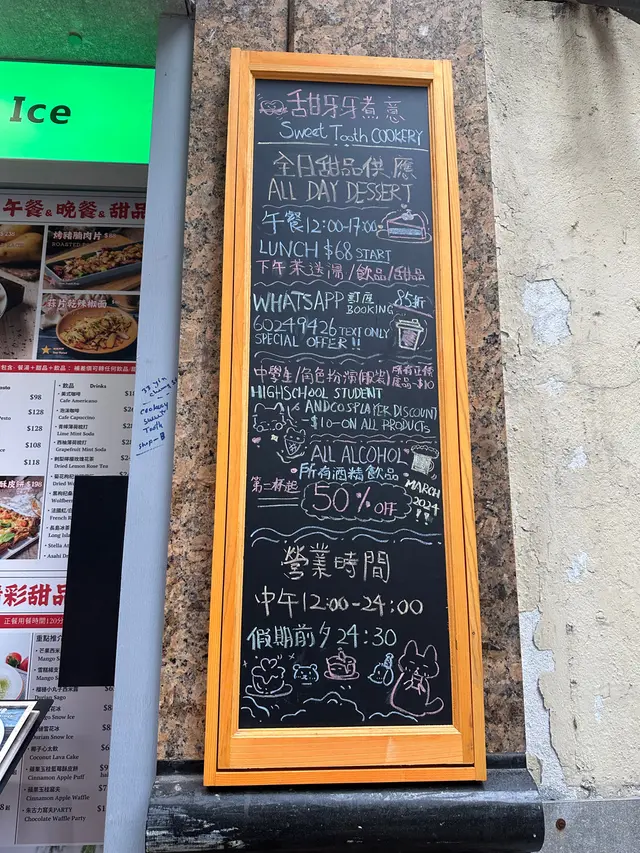 Ice
午餐&晚餐&甜品
烤豬腩肉片
蒜片乾辣椒麵
$98
$128
$128
$108
$118
飲品 Drinks
美式咖啡
Cafe Americano
泡沫咖啡
Cafe Capuccino
青檸薄荷梳打
Lime Mint Soda
西柚薄荷梳打
Grapefruit Mint Soda
Dried Lemon Rose Tea
Stella
Asahi
酥皮餅 $198
彩甜品
重點推介
Durian Sago
Snow Ice
Durian Snow Ice
椰子心太軟
Coconut Lava Cake
Cinnamon Apple Puff
Cinnamon Apple Waffle
朱古力窩夫PARTY
Chocolate Waffle Party
cookery
sweet
Tooth
shop
甜牙牙煮意
Sweet Tooth COOKERY
全日甜品供應
ALL DAY DESSERT
午餐12:00-17:00
LUNCH $68 START
下午茶送湯/飲品/甜品
WHATSAPP 訂座 BOOKING 85折
60249426 TEXT ONLY
SPECIAL OFFER !!
中學生/角色扮演(服裝) 所有正價產品-$10
HIGHSCHOOL STUDENT
AND COSPLAYER DISCOUNT
-$10-ON ALL PRODUCTS
ALL ALCOHOL
所有酒精飲品
第一杯起
50% OFF
MARCH
2024
!!
營業時間
中午12:00-24:00
假期前夕24:30